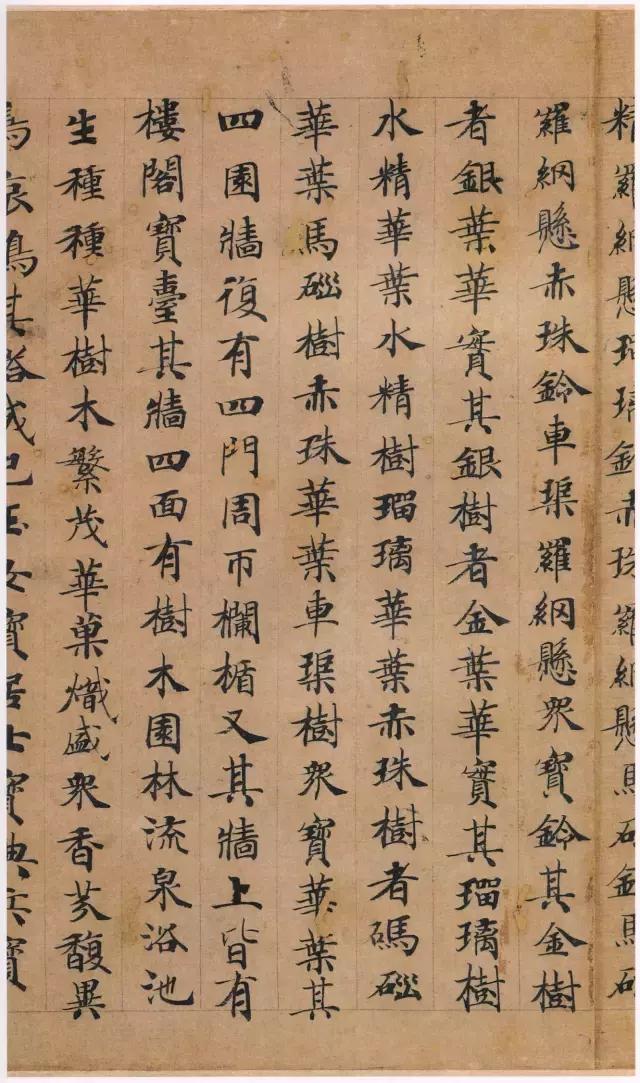 精羅網懸瑠璃鈴赤珠羅網懸馬碯鈴馬碯
羅網懸赤珠鈴車渠羅網懸眾寶鈴其金樹
者銀葉華實其銀樹者金葉華實其瑠璃樹
水精華葉水精樹瑠璃華葉赤珠樹者碼碯
華葉馬碯樹赤珠華葉車渠樹眾寶華葉其
四園牆復有四門周帀欄楯又其牆上皆有
樓閣寶臺其牆四面有樹木園林流泉浴池
生種種華樹木繁茂華菓熾盛眾香芬馥異
鳥哀鳴其塔成已玉女寶居士寶典兵寶